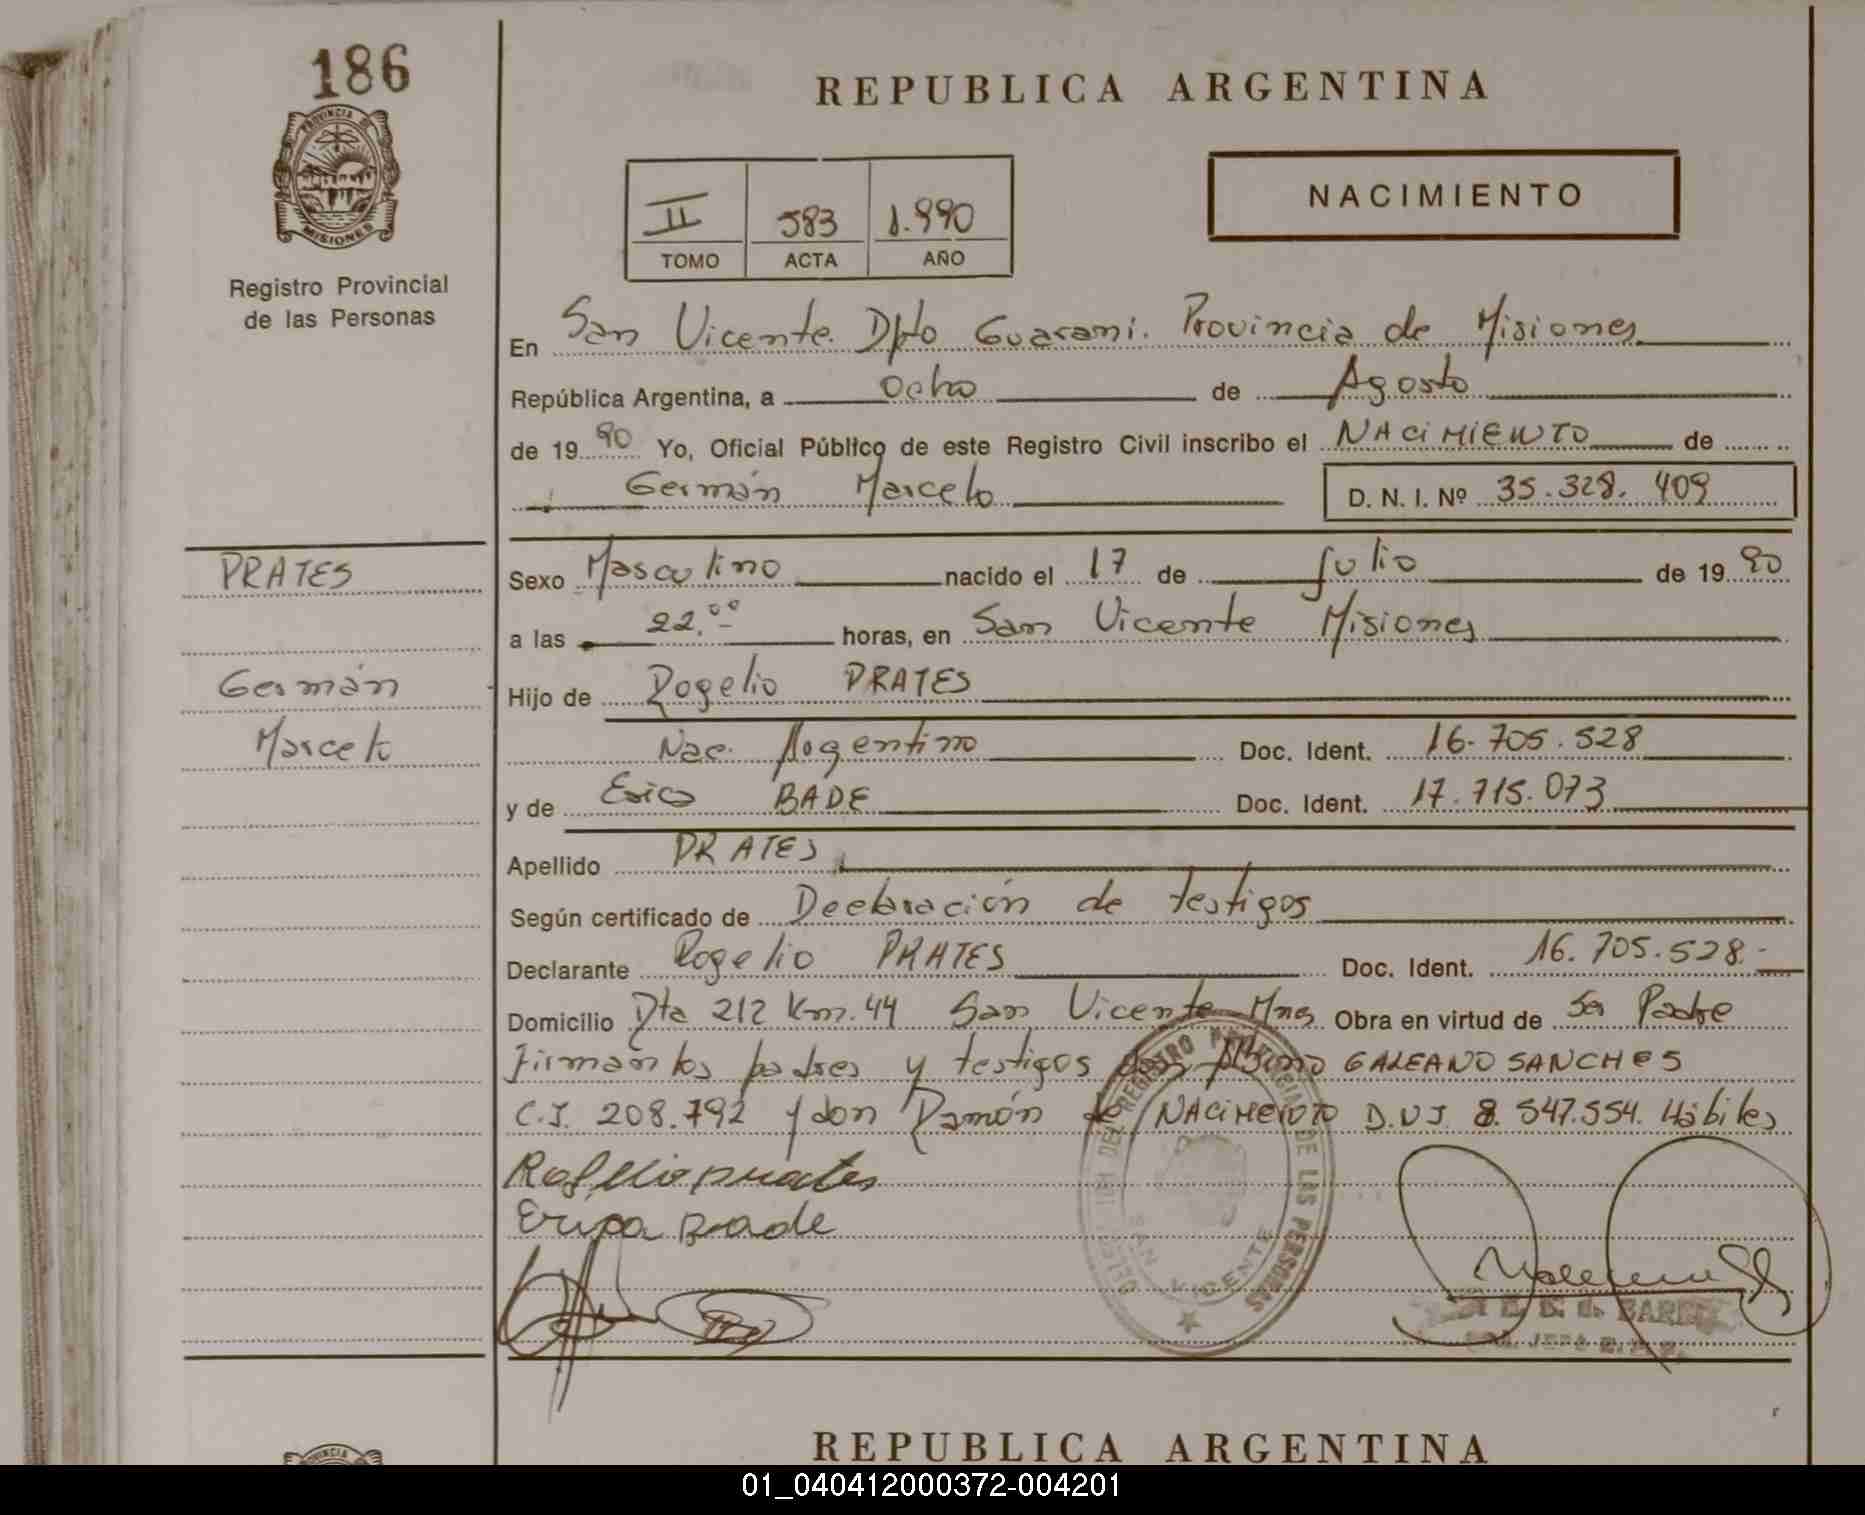 186
PROVINCIA DE
MISIONES
Registro Provincial
de las Personas
REPUBLICA ARGENTINA
NACIMIENTO
II 583 1.990
TOMO ACTA AÑO
En San Vicente. Dpto Guarani. Provincia de Misiones
República Argentina, a ocho de Agosto
de 19 90 Yo, Oficial Público de este Registro Civil inscribo el NACIMIENTO de
Germán Marcelo D. N. I. Nº 35.328.409
PRATES
Germán
Marcelo
Sexo Masculino nacido el 17 de Julio de 19 90
a las 22.00 horas, en San Vicente Misiones
Hijo de Rogelio PRATES
Nac. Argentino Doc. Ident. 16.705.528
y de Erica BADE Doc. Ident. 17.715.073
Apellido PRATES
Según certificado de Declaración de testigos
Declarante Rogelio PRATES Doc. Ident. 16.705.528.-
Domicilio Rta 212 Km. 44 San Vicente Mnes Obra en virtud de Ser Padre
Firman los padres y testigos don GALEANO SANCHES
C.I. 208.792 y don Ramón de NACIMEIOTO D.U.I. 8.547.554. Hábiles
Rogelio prates
Erica Bade
DEL REGISTRO PROVINCIAL DE LAS PERSONAS
SAN VICENTE
REPUBLICA ARGENTINA
01_040412000372-004201